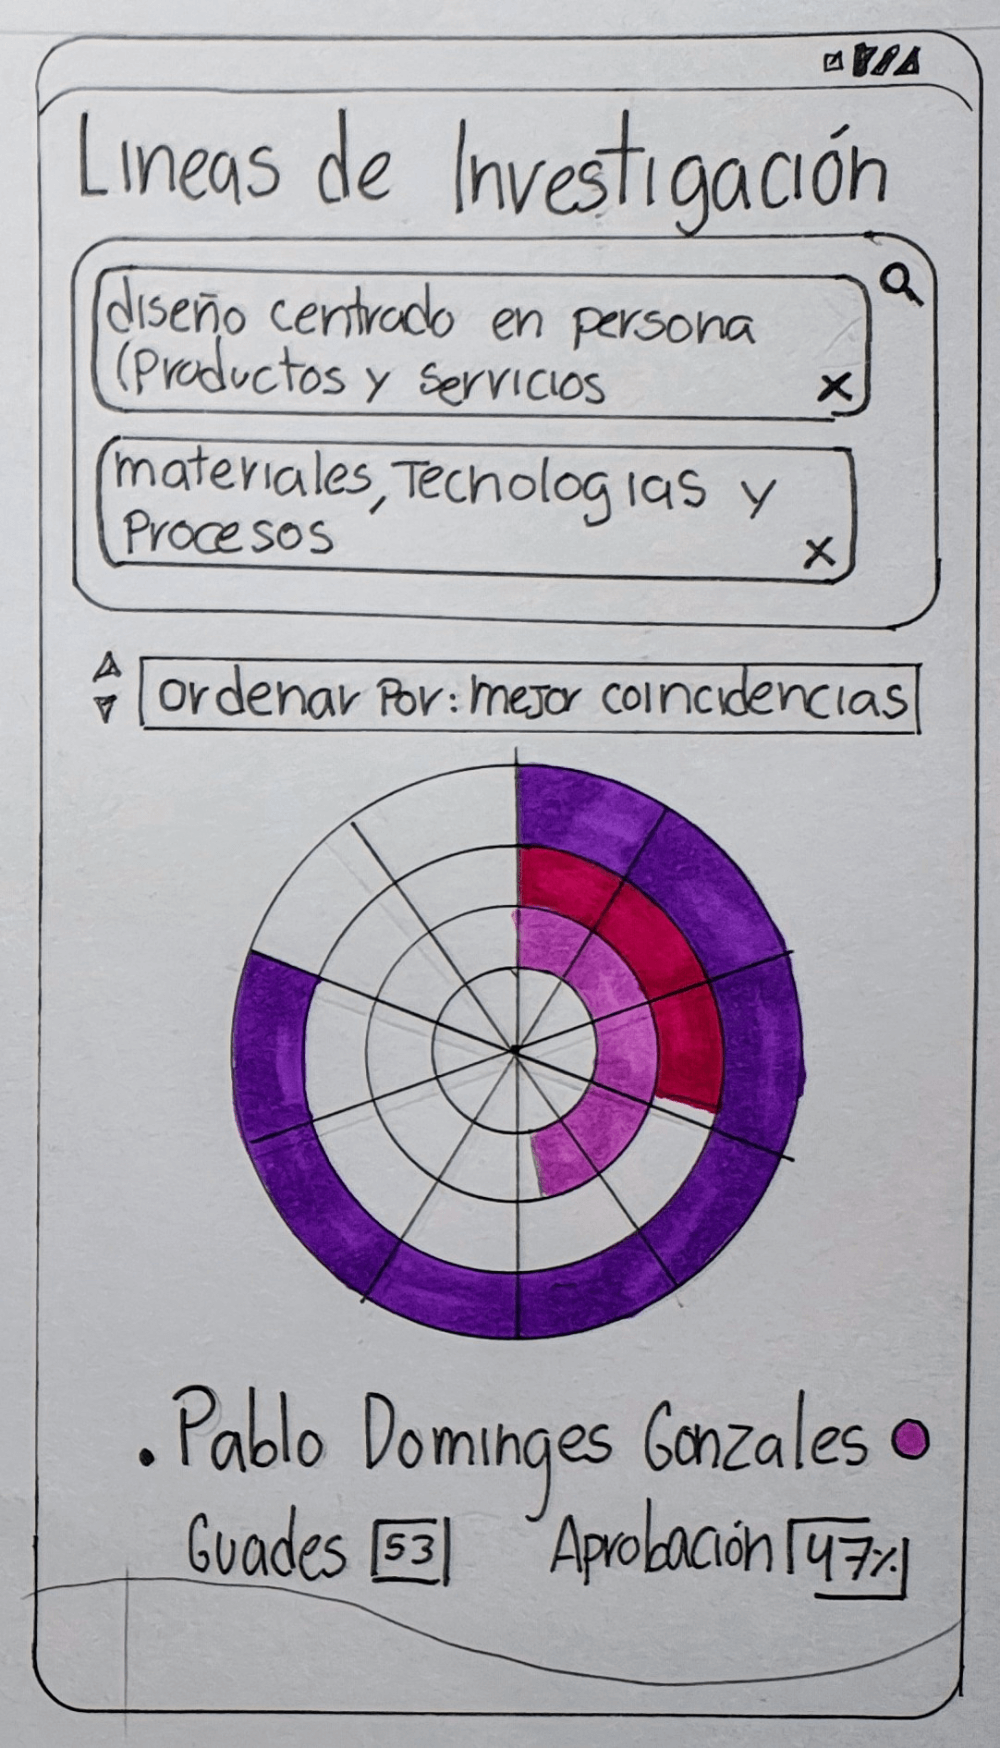 Lineas de Investigación
diseño centrado en persona
(Productos y servicios
x
materiales, Tecnologias y
Procesos
x
ordenar Por: mejor coincidencias
. Pablo Dominges Gonzales
Guades 53 Aprobación 47%